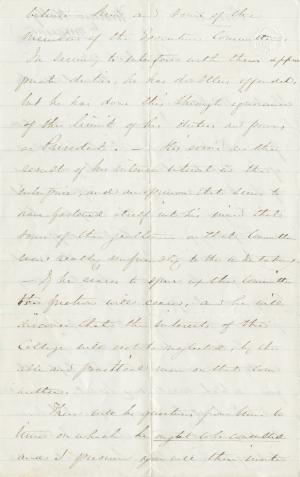 between him and some of the
members of the Executive Committee.
In seeming to interfere with their appro
priate duties, he has doubtless offended,
but he has done this through ignorance
of the limit of his duties and powers
as President. — the
result of his intense interest in the
enterprise, and an opinion that seems to
have fastened itself into his mind that
some of the gentlemen on that Committee
were really unfriendly to the
— If he ceases to upon this Committee
the friction will cease, and he will
discover that the interests of the
College will not be neglected, by the
able and practical men on that com
mittee.
There will be questions from time to
time on which he ought to be consulted
and I presume you will then invite